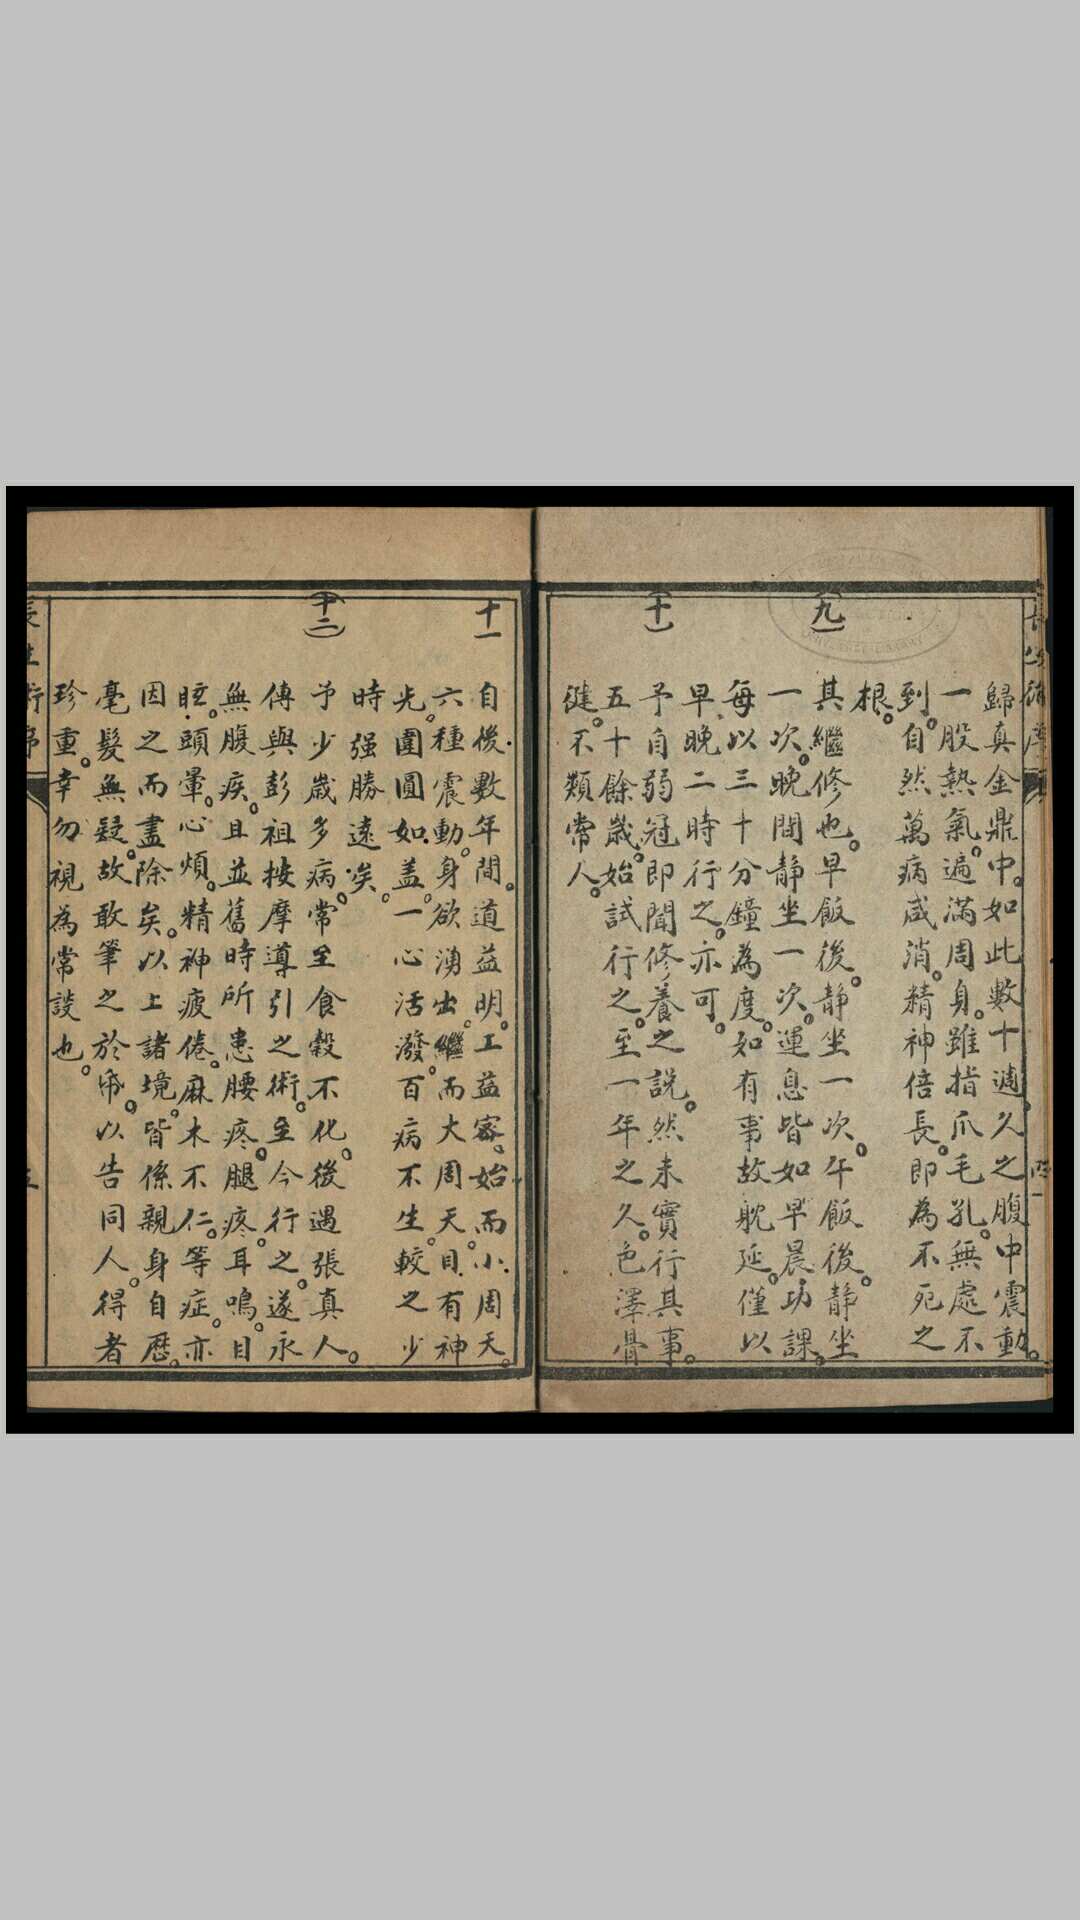 歸真金鼎中。如此數十週。久之腹中震動。
一股熱氣。遍滿周身。雖指爪毛孔。無處不
到。自然萬病咸消。精神倍長。即為不死之
根。
(九)
其繼修也。早飯後。靜坐一次。午飯後。靜坐
一次。晚間靜坐一次。運息皆如早晨功課。
每以三十分鐘為度。如有事故躭延。僅以
早晚二時行之。亦可。
(十)
予自弱冠即聞修養之説。然未實行其事。
五十餘歲。始試行之。至一年之久。色澤骨
健。不類常人。
十一
自後數年間。道益明。工益密。始而小周天。
六種震動。身欲湧出。繼而大周天。目有神
光。圍圓如蓋。一心活潑。百病不生。較之少
時强勝遠矣。
(十二)
予少歲多病。常至食穀不化。後遇張真人。
傳與彭祖按摩導引之術。至今行之。遂永
無腹疾。且並舊時所患腰疼。腿疼。耳鳴。目
眩。頭暈。心煩。精神疲倦。麻木不仁。等症。亦
因之而盡除矣。以上諸境。皆係親身自歷。
毫髮無疑。故敢筆之於帋。以告同人。得者
珍重。幸勿視為常談也。
長生術序